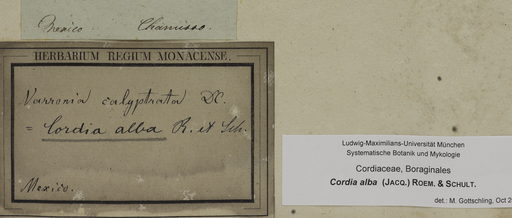 Mexico Chamisso.
HERBARIUM REGIUM MONACENSE.
Varronia calyptrata DC.
= Cordia alba R. et Sch.
Mexico.
Ludwig-Maximilians-Universität München
Systematische Botanik und Mykologie
Cordiaceae, Boraginales
Cordia alba (JACQ.) ROEM. & SCHULT.
det.: M. Gottschling, Oct 2